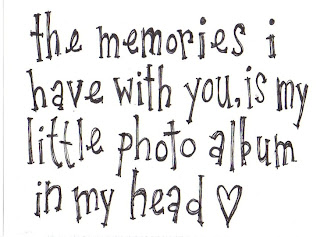 the memories i
have with you, is my
little photo album
in my head ♡